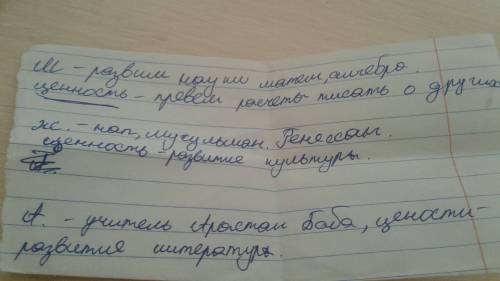 М - развит науки матем, алгебра.
ценность - превел расчеты писать о других
Ж. - нап, мусульман. Ренессан.
ценность - развитие культуры.
А. - учитель Арыстан Баба, цености -
развитие литератур.